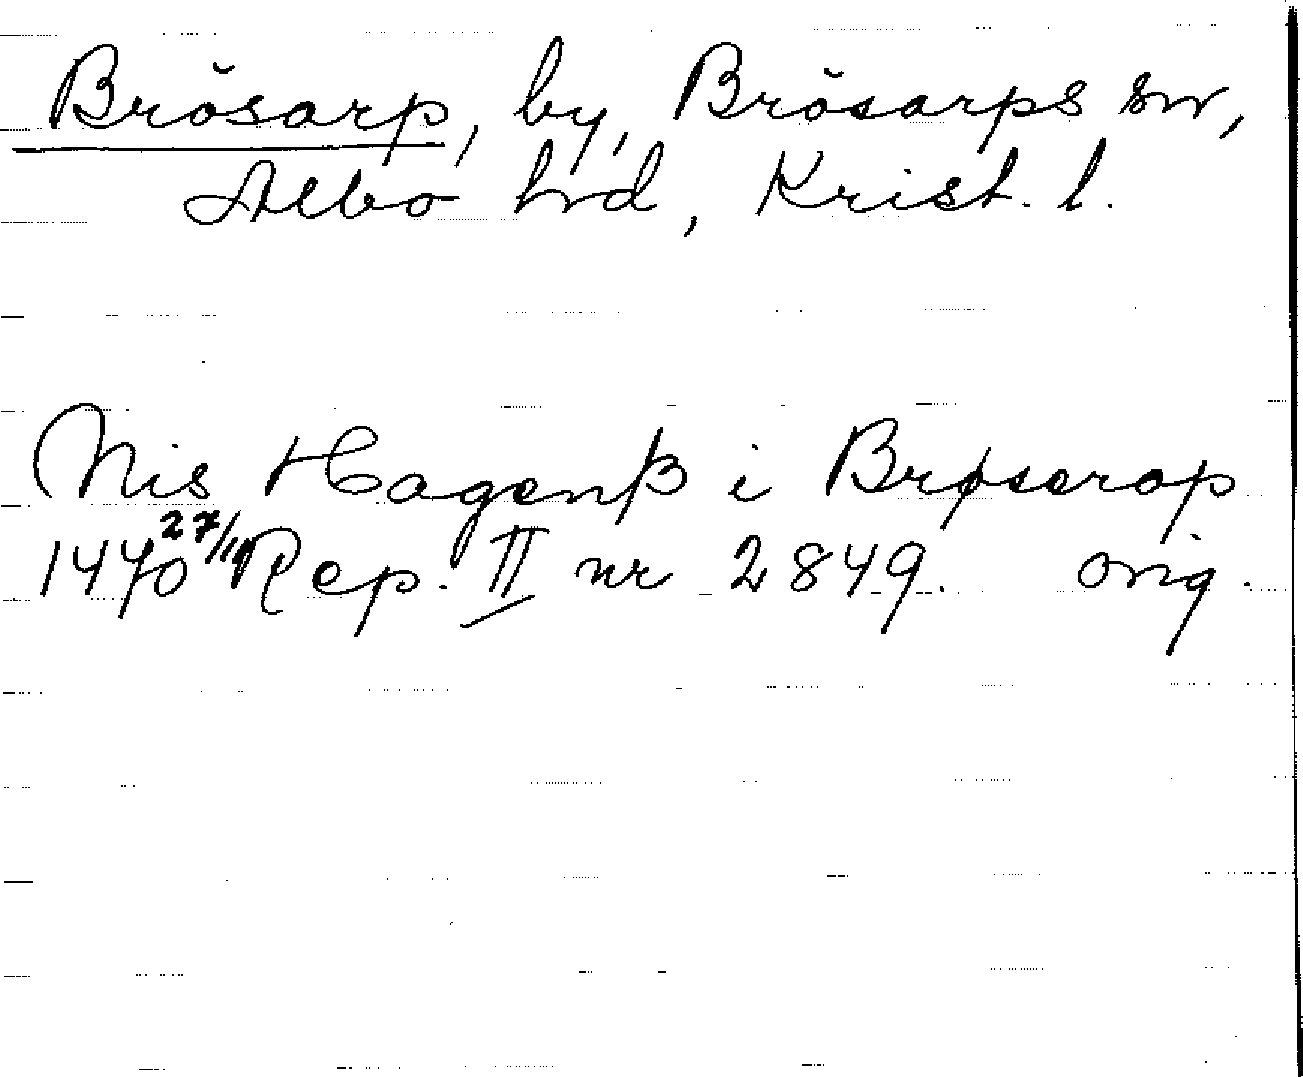 Brösarp, by, Brösarps sn,
Albo hd, Krist. l.
Nis Hagenß i Brøserop
1470 27/11 Rep. II nr 2849. orig.